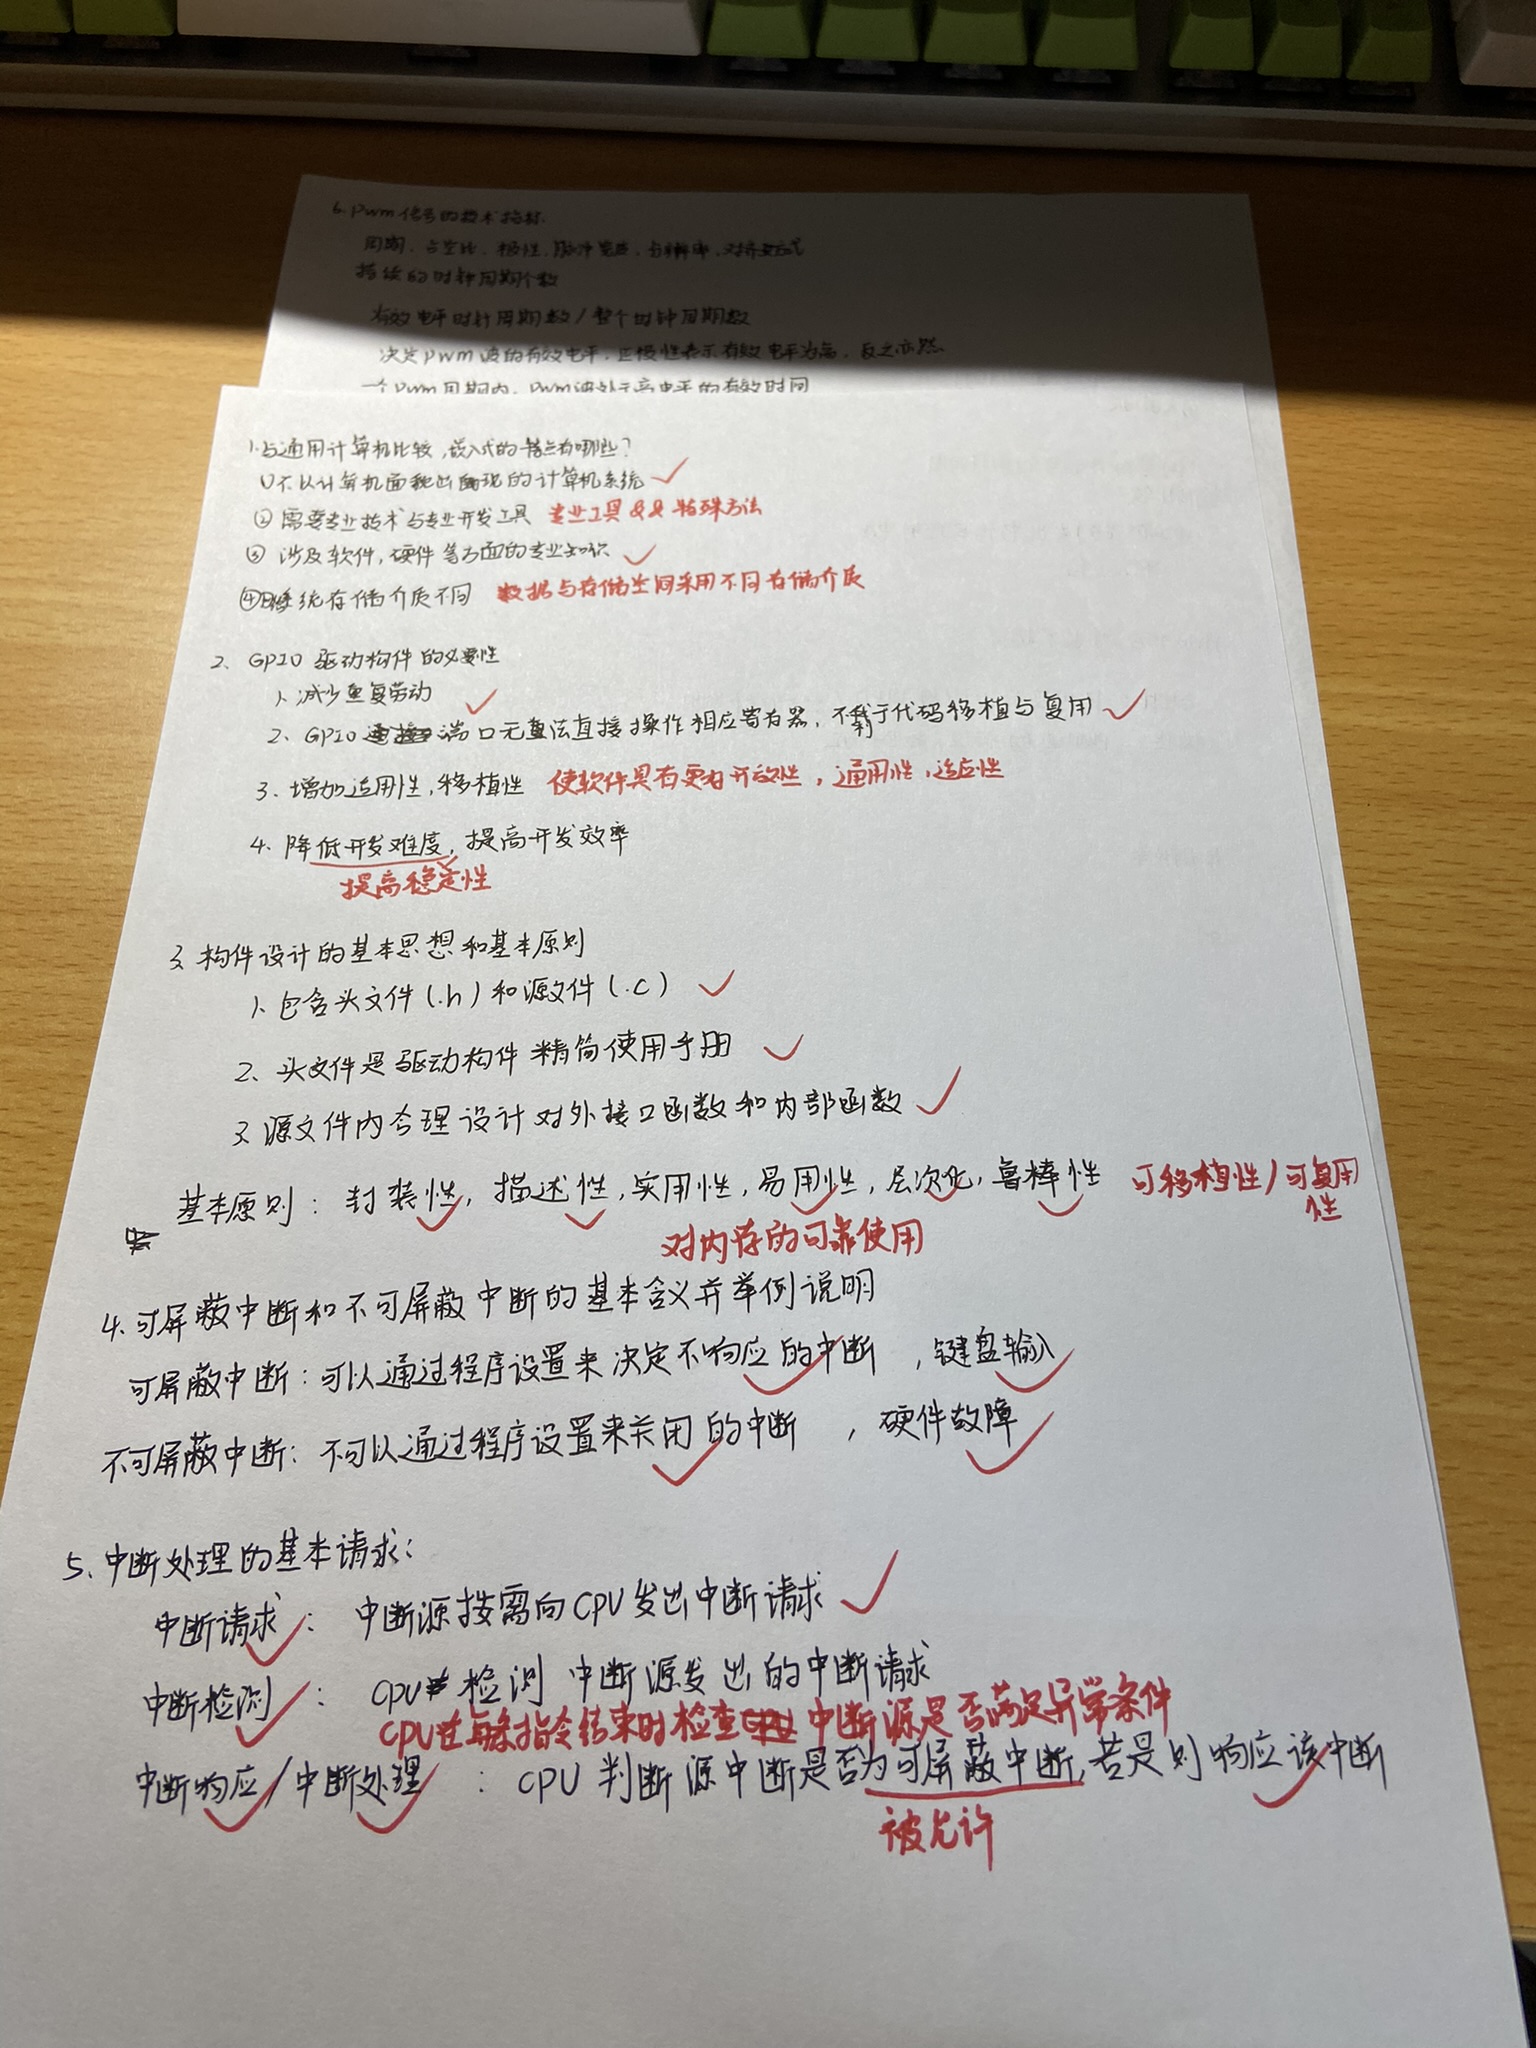 6. Pwm信号的技术指标
周期、占空比、极性、脉冲宽度、分辨率、对齐方式
持续的时钟周期个数
有效电平时针周期数/整个时钟周期数
决定pwm波的有效电平,正极性表示有效电平为高,反之亦然
一个Pwm周期内,Pwm波处于高电平的有效时间
1.与通用计算机比较,嵌入式的特点有哪些?
①不以计算机面貌出现的计算机系统
② 需要专业技术与专业开发工具 专业工具&&特殊方法
③ 涉及软件,硬件等方面的专业知识
④ 系统存储介质不同 数据与存储空间采用不同存储介质
2、GPIO 驱动构件的必要性
1、减少重复劳动
2、GPIO 端口无法直接操作相应寄存器,不利于代码移植与复用
3、增加适用性,移植性 使软件具有更好开放性,通用性,适应性
4、降低开发难度,提高开发效率
提高稳定性
3、构件设计的基本思想和基本原则
1、包含头文件(.h)和源文件(.c)
2、头文件是驱动构件精简使用手册
3、源文件内合理设计对外接口函数和内部函数
基本原则:封装性,描述性,实用性,易用性,层次化,鲁棒性 可移植性/可复用
性
对内存的可靠使用
4.可屏蔽中断和不可屏蔽中断的基本含义并举例说明
可屏蔽中断:可以通过程序设置来决定不响应的中断 ,键盘输入
不可屏蔽中断:不可以通过程序设置来关闭的中断 ,硬件故障
5、中断处理的基本请求:
中断请求: 中断源按需向CPU发出中断请求
中断检测: CPU 检测 中断源发出的中断请求
CPU在每条指令结束时检查 中断源是否满足异常条件
中断响应/中断处理 : CPU 判断源中断是否为可屏蔽中断,若是则响应该中断
被允许